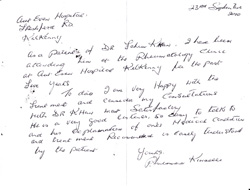 23rd September
Aut Even Hospital
Freshford Rd
Kilkenny
As a patient of DR I have been
attending him at the Rheumatology Clinic
at Aut Even Hospital Kilkenny for the past
five years
To date I am very Happy with the
treatment and consider my Consultations
with DR most Satisfactory
He is a very good listener, so easy to talk to
and his explanation of one's Medical condition
and treatment Recommended is easily understood
by the patient
Yours